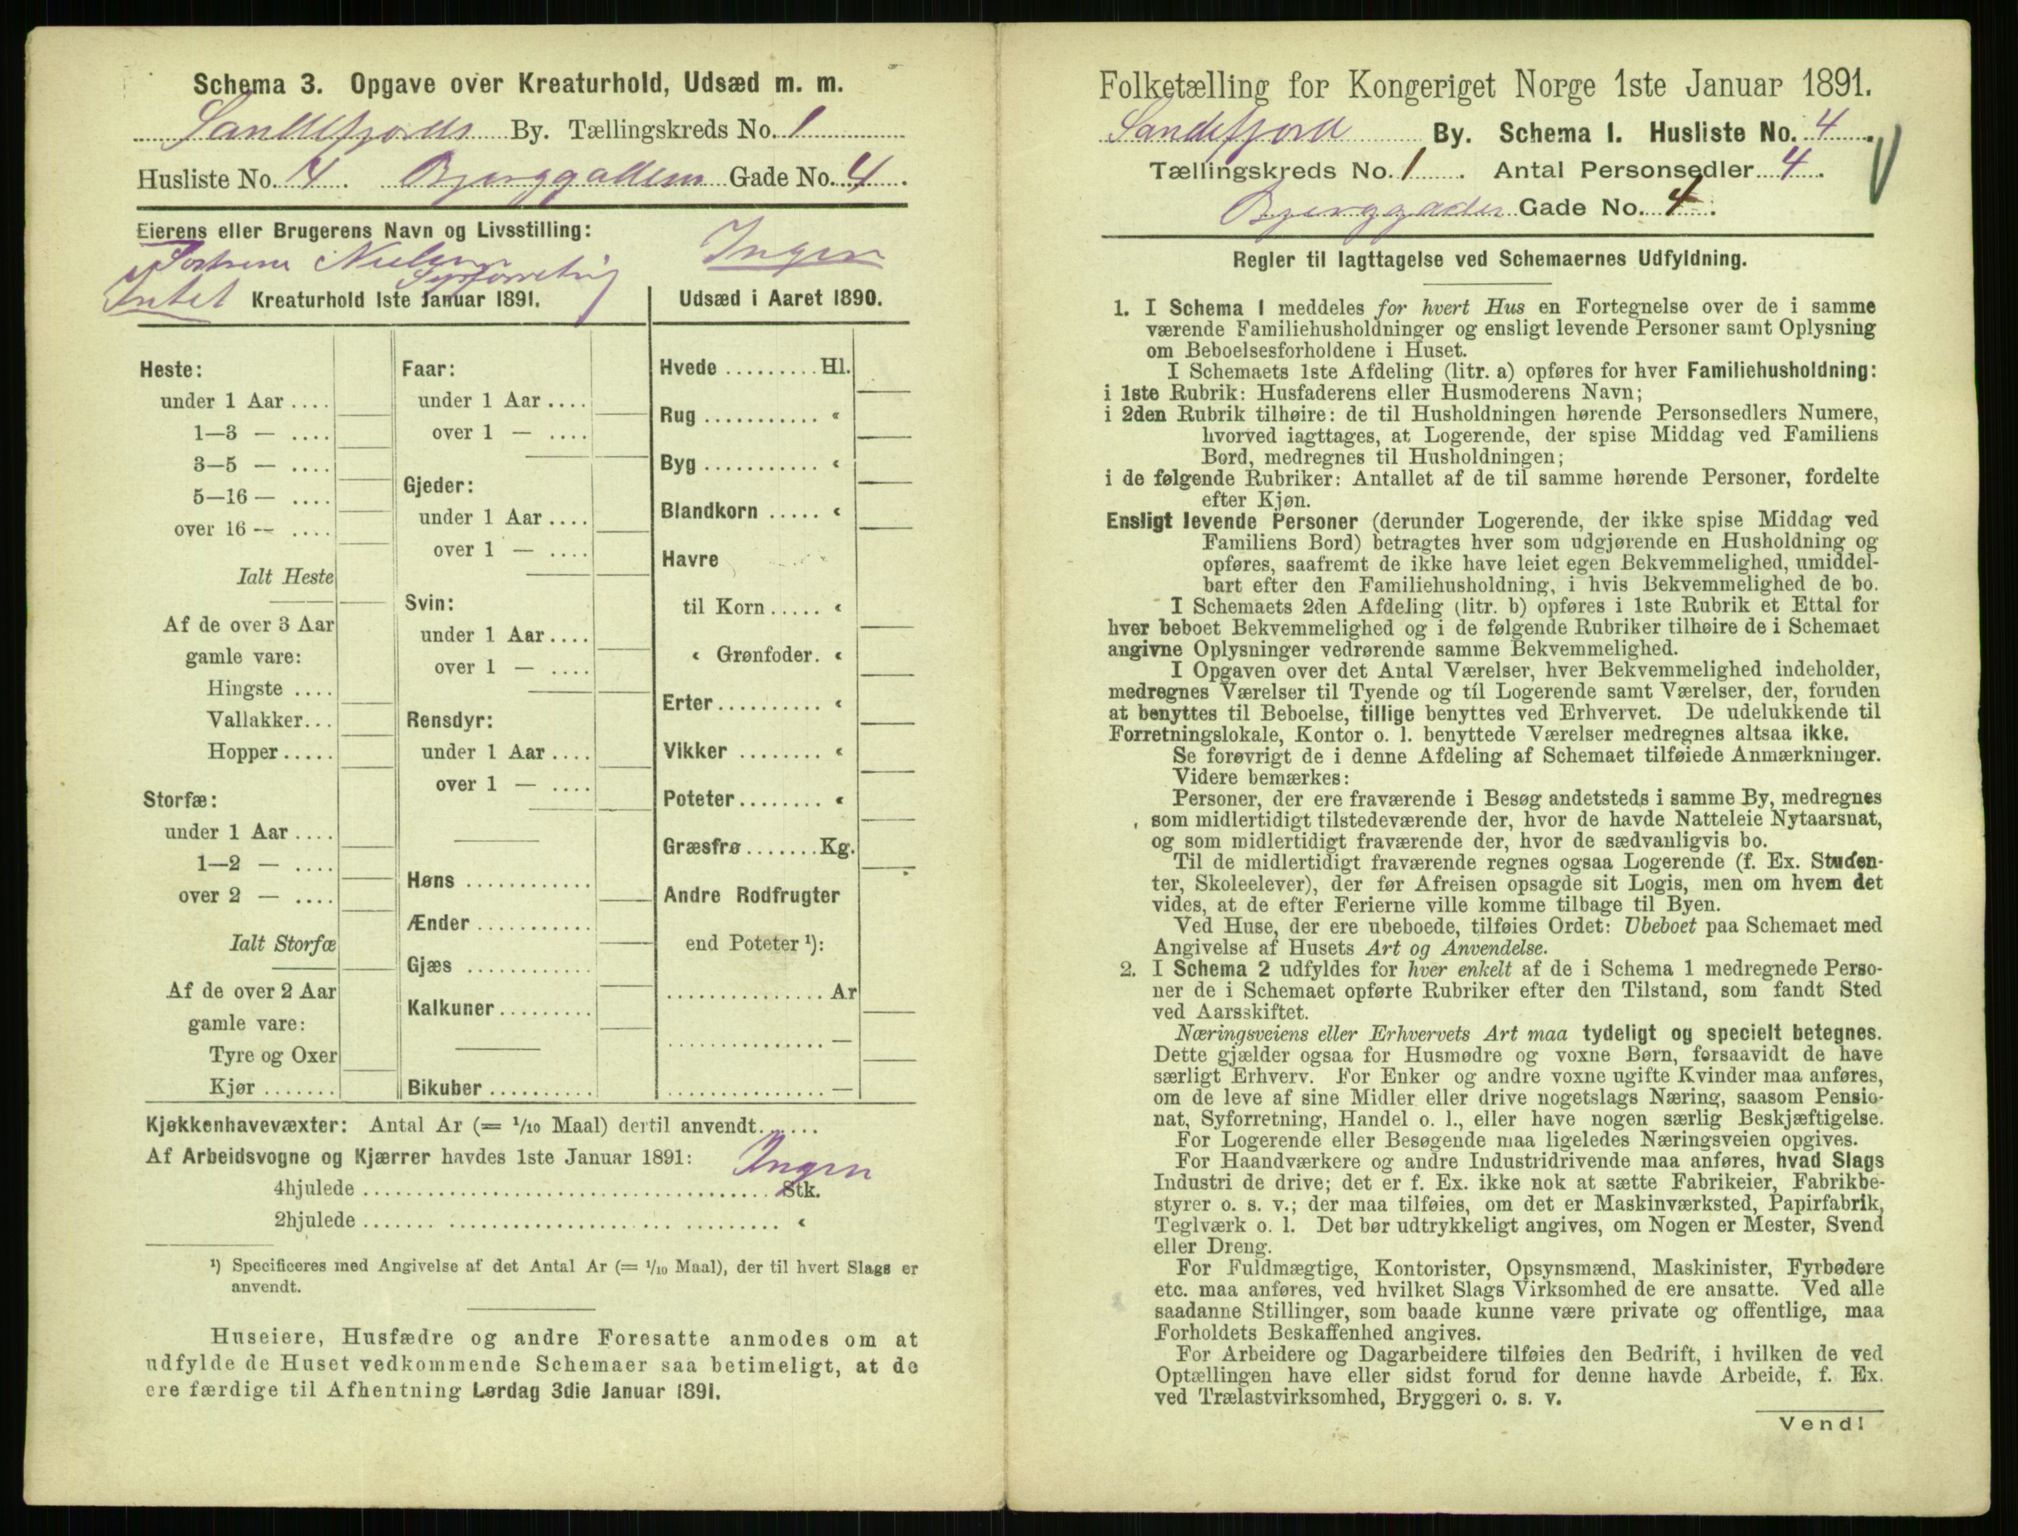 Schema 3. Opgave over Kreaturhold, Udsæd m. m.
Sandefjords By. Tællingskreds No. 1
Husliste No. 4. Bjerggadens Gade No. 4.
Eierens eller Brugerens Navn og Livsstilling:
Nielsen Syforretnig
Ingen
Intet Kreaturhold 1ste Januar 1891.
Udsæd i Aaret 1890.
Heste:
under 1 Aar ....
1—3 — ....
3—5 — ....
5—16 — ....
over 16 — ....
Ialt Heste
Af de over 3 Aar
gamle vare:
Hingste ....
Vallakker...
Hopper.....
Storfæ:
under 1 Aar ....
1—2 — ....
over 2 — ....
Ialt Storfæ
Af de over 2 Aar
gamle vare:
Tyre og Oxer
Kjør .......
Faar:
under 1 Aar ....
over 1 — ....
Gjeder:
under 1 Aar ....
over 1 — ....
Svin:
under 1 Aar ....
over 1 — ....
Rensdyr:
under 1 Aar ....
over 1 — ....
Høns ............
Ænder ...........
Gjæs ............
Kalkuner.........
Bikuber..........
Hvede ......... Hl.
Rug ........... «
Byg ........... «
Blandkorn ..... «
Havre
til Korn ..... «
« Grønfoder. «
Erter.......... «
Vikker ........ «
Poteter........ «
Græsfrø ....... Kg.
Andre Rodfrugter
end Poteter ¹):
............... Ar
............... —
............... —
Kjøkkenhavevæxter: Antal Ar (= 1/10 Maal) dertil anvendt......
Af Arbeidsvogne og Kjærrer havdes 1ste Januar 1891: Ingen
4hjulede ..................................... Stk.
2hjulede ..................................... «
¹) Specificeres med Angivelse af det Antal Ar (= 1/10 Maal), der til hvert Slags er
anvendt.
Huseiere, Husfædre og andre Foresatte anmodes om at
udfylde de Huset vedkommende Schemaer saa betimeligt, at de
ere færdige til Afhentning Lørdag 3die Januar 1891.
Folketælling for Kongeriget Norge 1ste Januar 1891.
Sandefjord By. Schema 1. Husliste No. 4.
Tællingskreds No. 1. Antal Personsedler 4.
Bjerggades Gade No. 4.
Regler til Iagttagelse ved Schemaernes Udfyldning.
1. I Schema 1 meddeles for hvert Hus en Fortegnelse over de i samme
værende Familiehusholdninger og ensligt levende Personer samt Oplysning
om Beboelsesforholdene i Huset.
I Schemaets 1ste Afdeling (litr. a) opføres for hver Familiehusholdning:
i 1ste Rubrik: Husfaderens eller Husmoderens Navn;
i 2den Rubrik tilhøire: de til Husholdningen hørende Personsedlers Numere,
hvorved iagttages, at Logerende, der spise Middag ved Familiens
Bord, medregnes til Husholdningen;
i de følgende Rubriker: Antallet af de til samme hørende Personer, fordelte
efter Kjøn.
Ensligt levende Personer (derunder Logerende, der ikke spise Middag ved
Familiens Bord) betragtes hver som udgjørende en Husholdning og
opføres, saafremt de ikke have leiet egen Bekvemmelighed, umiddel-
bart efter den Familiehusholdning, i hvis Bekvemmelighed de bo.
I Schemaets 2den Afdeling (litr. b) opføres i 1ste Rubrik et Ettal for
hver beboet Bekvemmelighed og i de følgende Rubriker tilhøire de i Schemaet
angivne Oplysninger vedrørende samme Bekvemmelighed.
I Opgaven over det Antal Værelser, hver Bekvemmelighed indeholder,
medregnes Værelser til Tyende og til Logerende samt Værelser, der, foruden
at benyttes til Beboelse, tillige benyttes ved Erhvervet. De udelukkende til
Forretningslokale, Kontor o. l. benyttede Værelser medregnes altsaa ikke.
Se forøvrigt de i denne Afdeling af Schemaet tilføiede Anmærkninger.
Videre bemærkes:
Personer, der ere fraværende i Besøg andetsteds i samme By, medregnes
som midlertidigt tilstedeværende der, hvor de havde Natteleie Nytaarsnat,
og som midlertidigt fraværende der, hvor de sædvanligvis bo.
Til de midlertidigt fraværende regnes ogsaa Logerende (f. Ex. Studen-
ter, Skoleelever), der før Afreisen opsagde sit Logis, men om hvem det
vides, at de efter Ferierne ville komme tilbage til Byen.
Ved Huse, der ere ubeboede, tilføies Ordet: Ubeboet paa Schemaet med
Angivelse af Husets Art og Anvendelse.
2. I Schema 2 udfyldes for hver enkelt af de i Schema 1 medregnede Perso-
ner de i Schemaet opførte Rubriker efter den Tilstand, som fandt Sted
ved Aarsskiftet.
Næringsveiens eller Erhvervets Art maa tydeligt og specielt betegnes.
Dette gjælder ogsaa for Husmødre og voxne Børn, forsaavidt de have
særligt Erhverv. For Enker og andre voxne ugifte Kvinder maa anføres,
om de leve af sine Midler eller drive nogetslags Næring, saasom Pensio-
nat, Syforretning, Handel o. l., eller have nogen særlig Beskjæftigelse.
For Logerende eller Besøgende maa ligeledes Næringsveien opgives.
For Haandværkere og andre Industridrivende maa anføres, hvad Slags
Industri de drive; det er f. Ex. ikke nok at sætte Fabrikeier, Fabrikbe-
styrer o. s. v.; der maa tilføies, om det er Maskinværksted, Papirfabrik,
Teglværk o. l. Det bør udtrykkeligt angives, om Nogen er Mester, Svend
eller Dreng.
For Fuldmægtige, Kontorister, Opsynsmænd, Maskinister, Fyrbødere
etc. maa anføres, ved hvilket Slags Virksomhed de ere ansatte. Ved alle
saadanne Stillinger, som baade kunne være private og offentlige, maa
Forholdets Beskaffenhed angives.
For Arbeidere og Dagarbeidere tilføies den Bedrift, i hvilken de ved
Optællingen have eller sidst forud for denne havde Arbeide, f. Ex.
ved Trælastvirksomhed, Bryggeri o. s. v.
Vend!